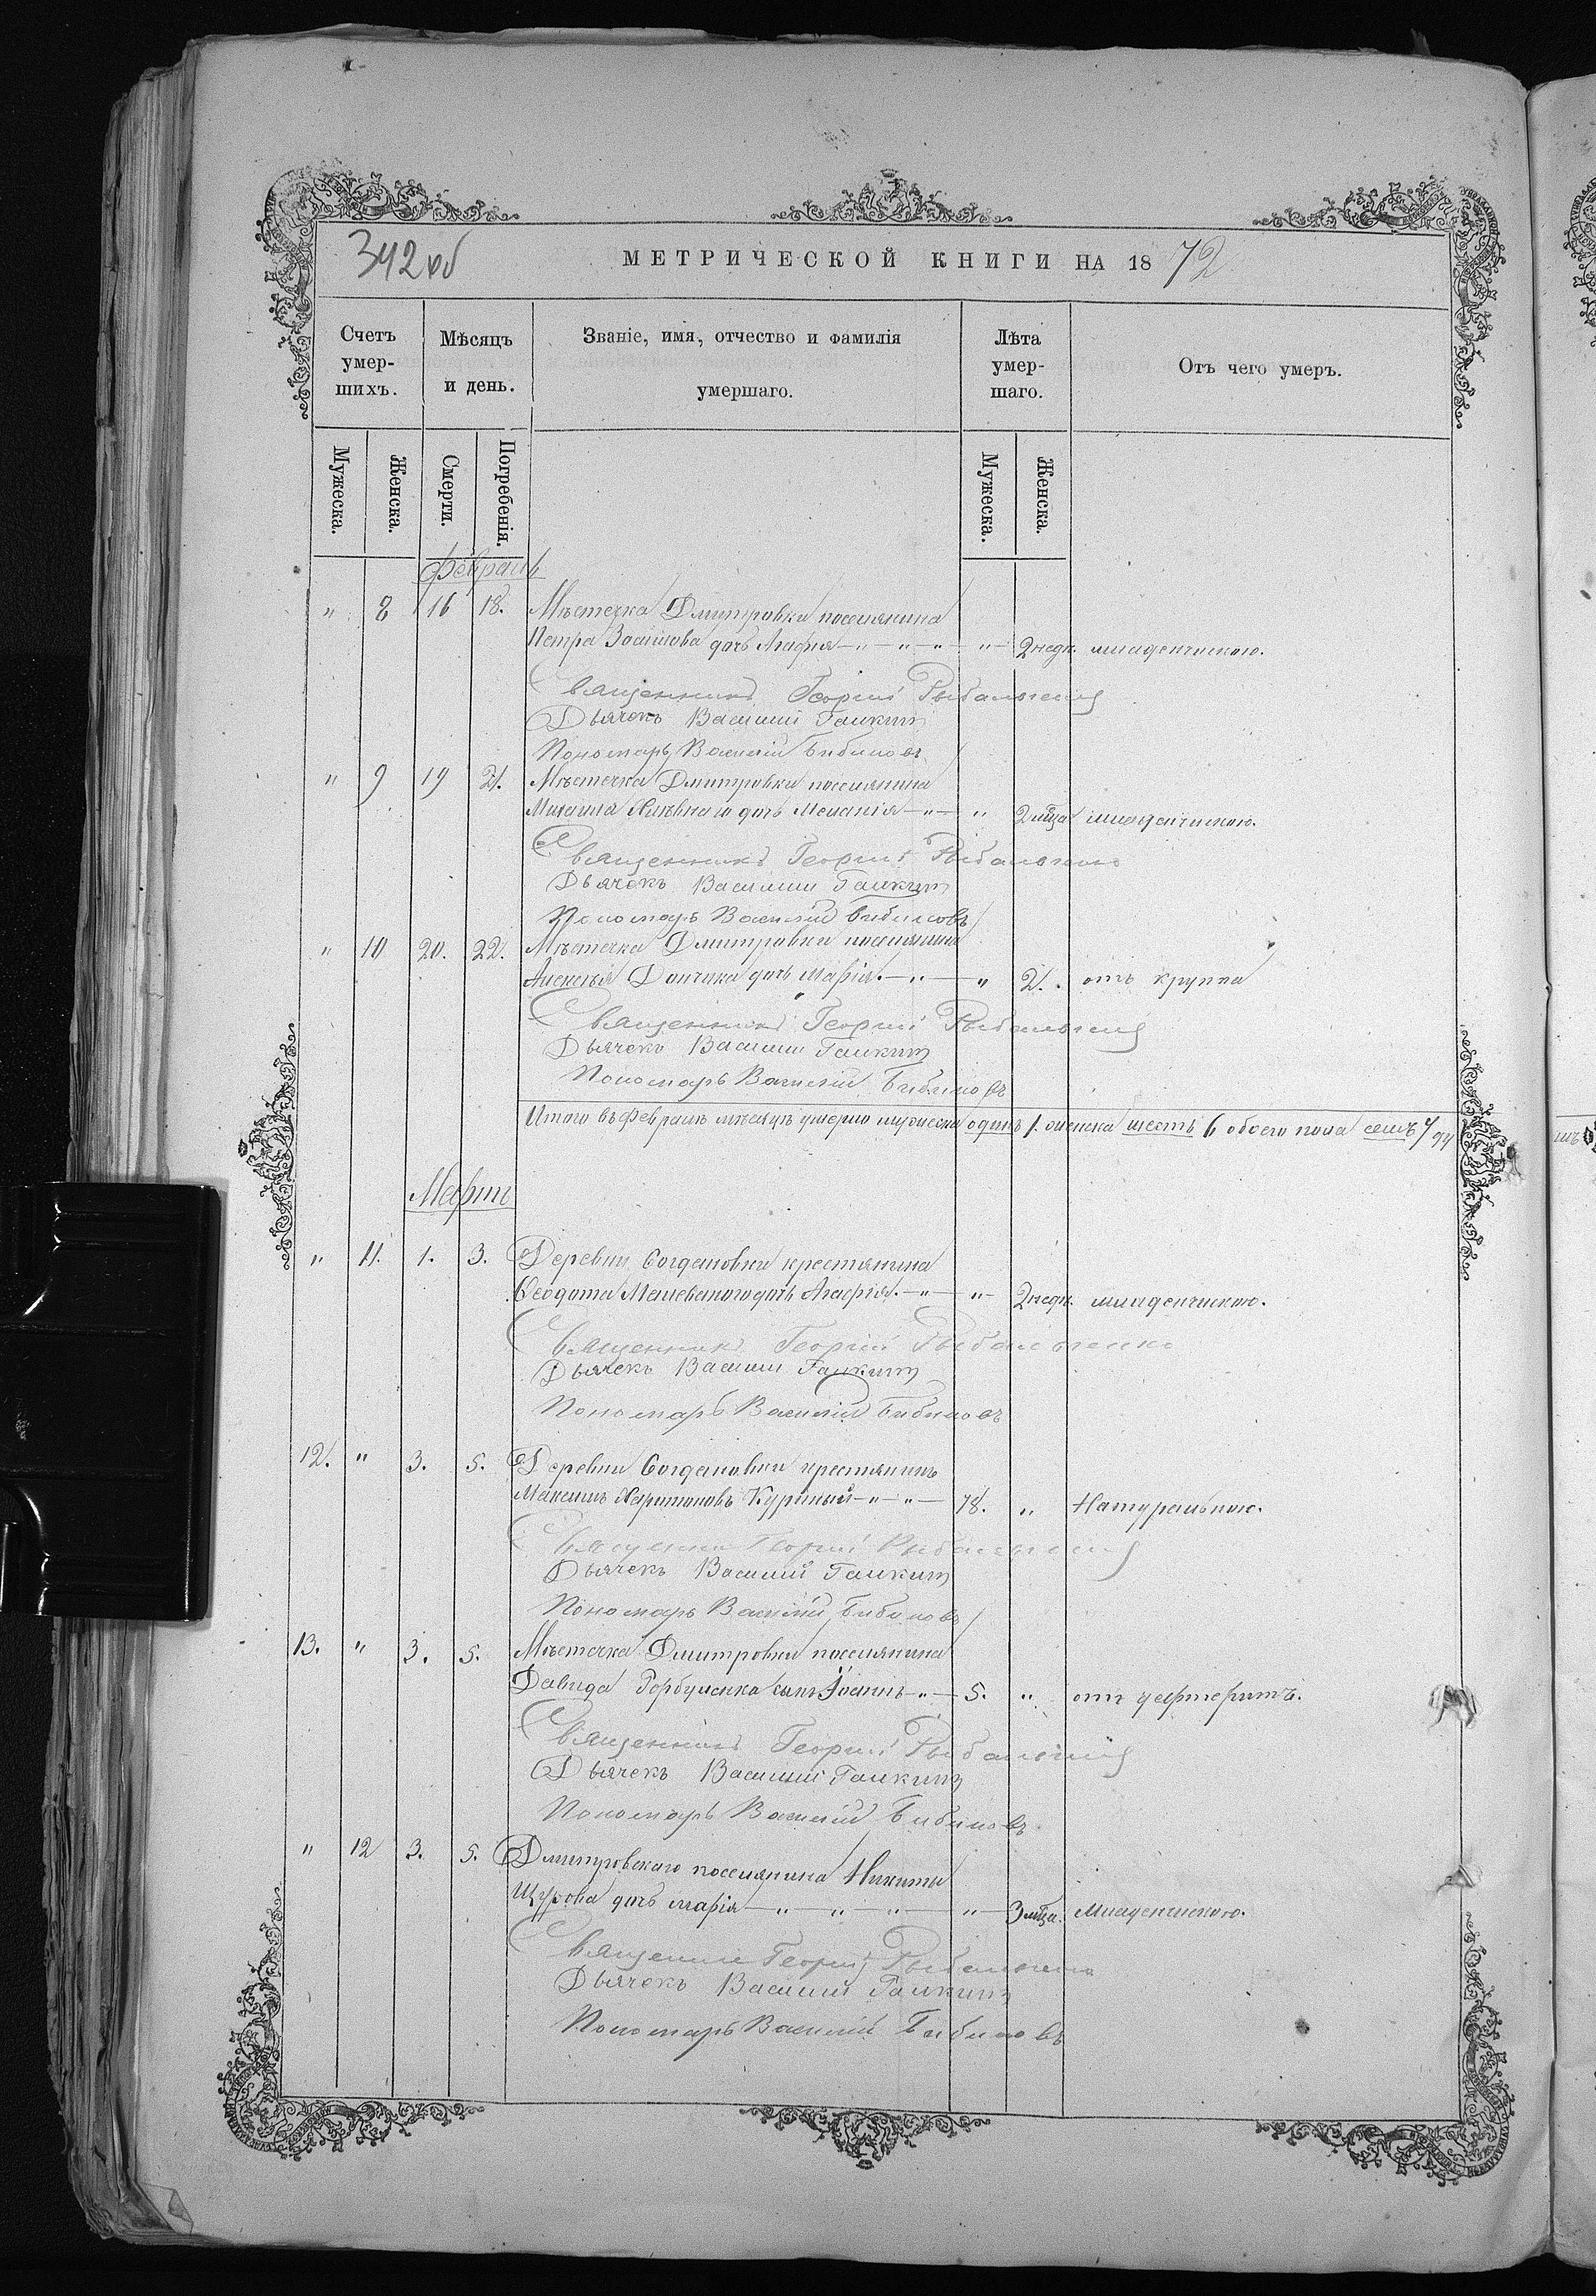 342 об
МЕТРИЧЕСКОЙ КНИГИ НА 1872
Счетъ умер-шихъ.
Мѣсяцъ и день.
Званіе, имя, отчество и фамилія умершаго.
Лѣта умер-шаго.
Отъ чего умеръ.
Мужеска. Женска. Смерти. Погребенія. Мужеска. Женска.
Февраль
" 8 16 18. Мѣстечка Дмитровки поселянина
Петра дочь Агафія —"—"—"— "— 2 недк. младенческою.
Священникъ Георгій Рыбальченко
Дьячекъ Василий Галкинъ
Пономарь Василій Бибиковъ
" 9 19 21. Мѣстечка Дмитровки поселянина
Михаила дочь Меланія —"— " 2 мца младенческою.
Священникъ Георгій Рыбальченко
Дьячекъ Василий Галкинъ
Пономарь Василій Бибиковъ
" 10 20. 22. Мѣстечка Дмитровки поселянина
Алексѣя Дончика дочь Марія. —"— " 2. отъ крупа
Священникъ Георгій Рыбальченко
Дьячекъ Василий Галкинъ
Пономарь Василій Бибиковъ
Итого въ Февралѣ мѣсяцѣ умерло мужеска одинъ 1. женска шесть 6 обоего пола семь 7
Мартъ
" 11. 1. 3. Деревни Богдановки крестянина
Ѳеодота дочь Агафія. —"— "— 2 недк. младенческою.
Священникъ Георгій Рыбальченко
Дьячекъ Василий Галкинъ
Пономарь Василій Бибиковъ
12. " 3. 5. Деревни Богдановки крестянинъ
Максимъ Харитоновъ Куріный —"—"— 78. " Натуральною.
Священникъ Георгій Рыбальченко
Дьячекъ Василий Галкинъ
Пономарь Василій Бибиковъ
13. " 3. 5. Мѣстечка Дмитровки поселянина
Давида Горбуленка сынъ Іоаннъ —"— 5. " отъ дефтеритъ.
Священникъ Георгій Рыбальченко
Дьячекъ Василий Галкинъ
Пономарь Василій Бибиковъ
" 12 3. 5. Дмитровскаго поселянина Никиты
Щурова дочь Марія —"—"—"— "— 3 мца. Младенческою.
Священникъ Георгій Рыбальченко
Дьячекъ Василий Галкинъ
Пономарь Василій Бибиковъ